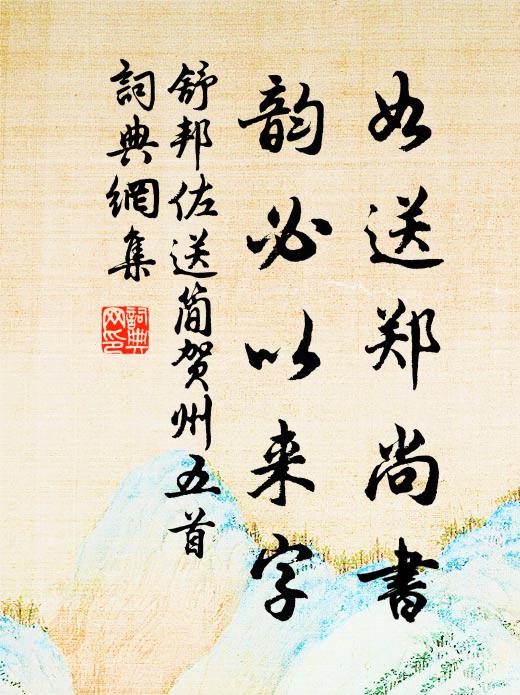 如送郑尚书
韵必以来字
舒邦佐送简贺州五首
詞典網集
詞典网印